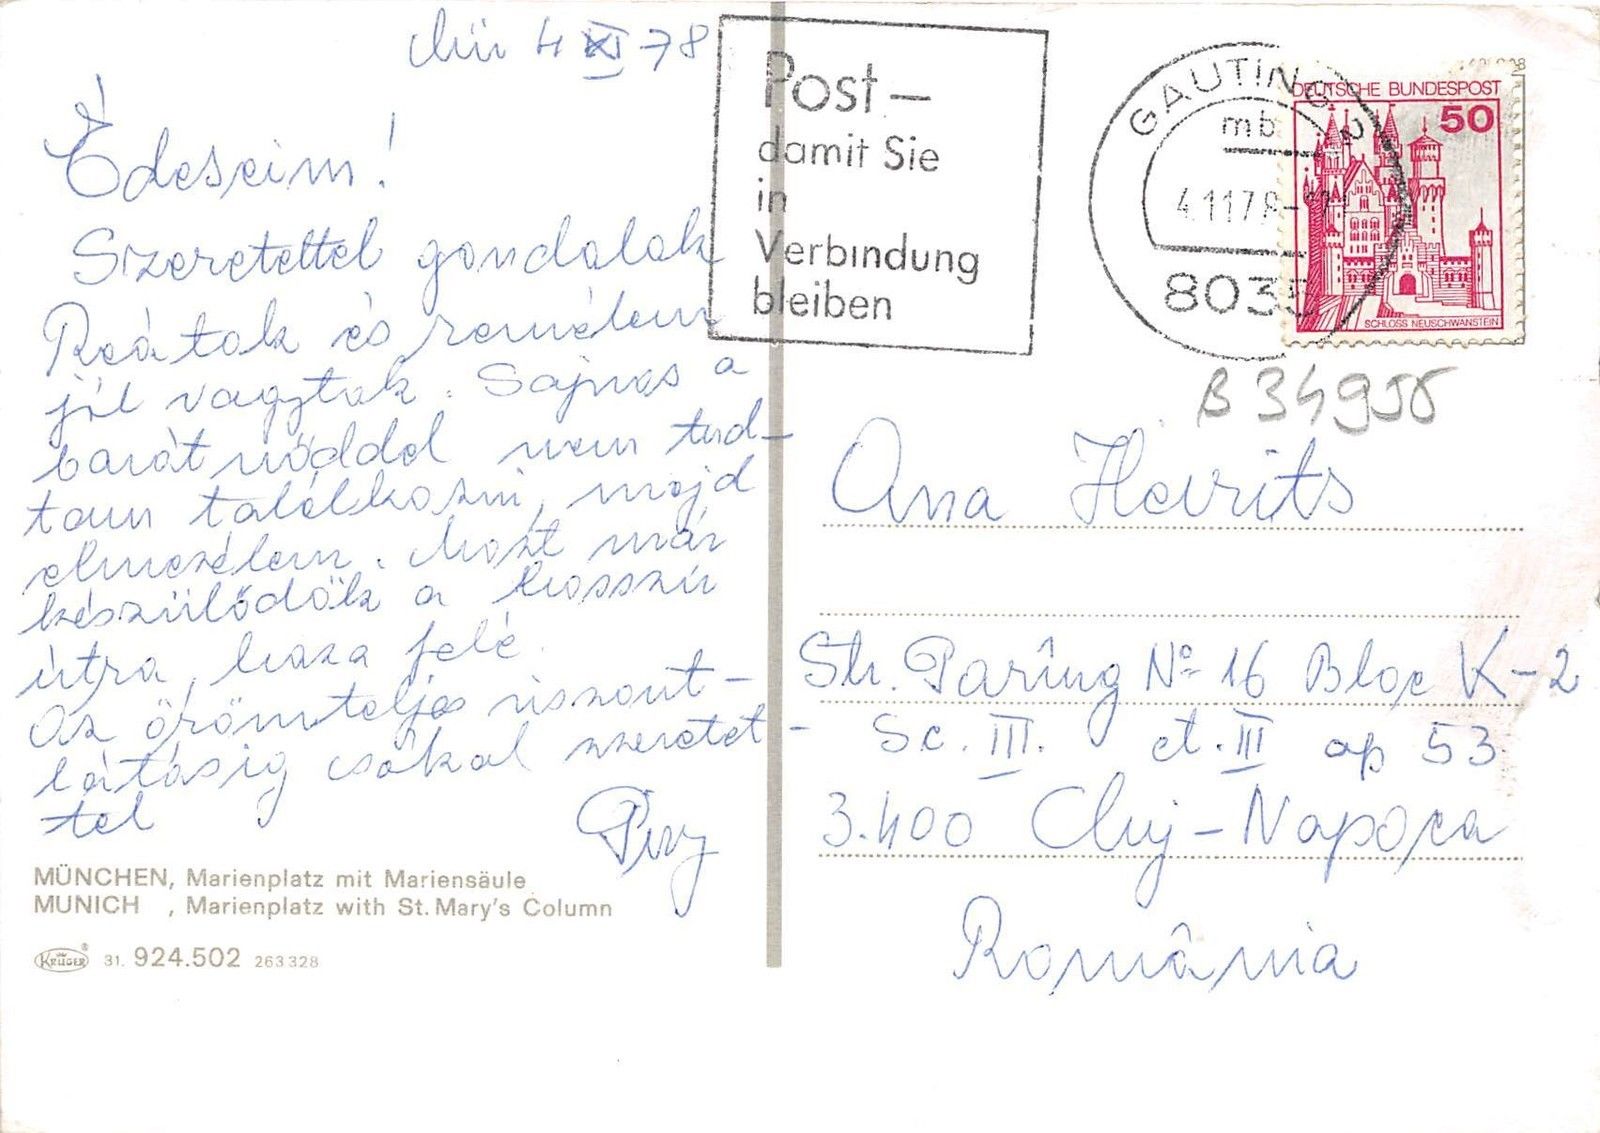 Mü 4 XI 78
Édeseim!
Szeretettel gondolok
Reátok és remélem
jól vagytok. Sajnos a
barátnőddel nem tud-
tam találkozni, majd
elmesélem. Most már
készülődök a hosszú
útra, haza felé.
Az örömteljes viszont-
látásig csókol szeretet-
tel
MÜNCHEN, Marienplatz mit Mariensäule
MUNICH , Marienplatz with St. Mary's Column
KRÜGER 31. 924.502 263328
Post –
damit Sie
in
Verbindung
bleiben
GAUTING 2
mb
4.11.78
8035
DEUTSCHE BUNDESPOST
50
SCHLOSS NEUSCHWANSTEIN
B 34955
Ana Heirits
Str. Parîng No 16 Bloc K-2
Sc. III. et. III ap 53
3.400 Cluj-Napoca
România